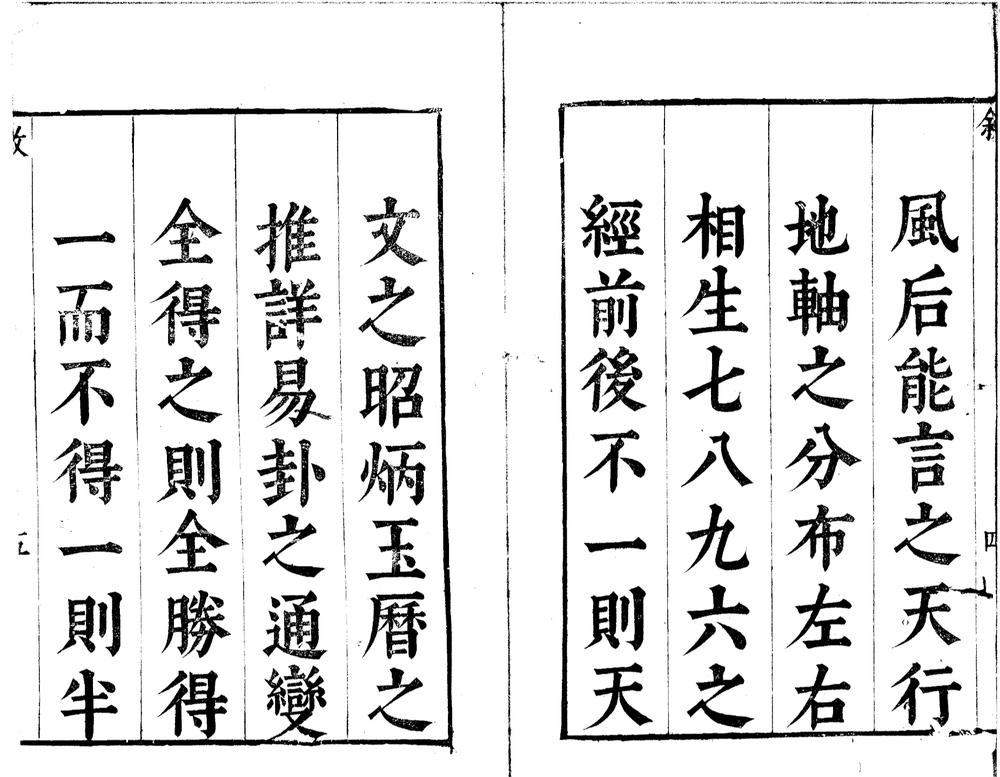 風后能言之天行
地軸之分布左右
相生七八九六之
經前後不一則天
文之昭炳玉曆之
推詳易卦之通變
全得之則全勝得
一而不得一則半
四